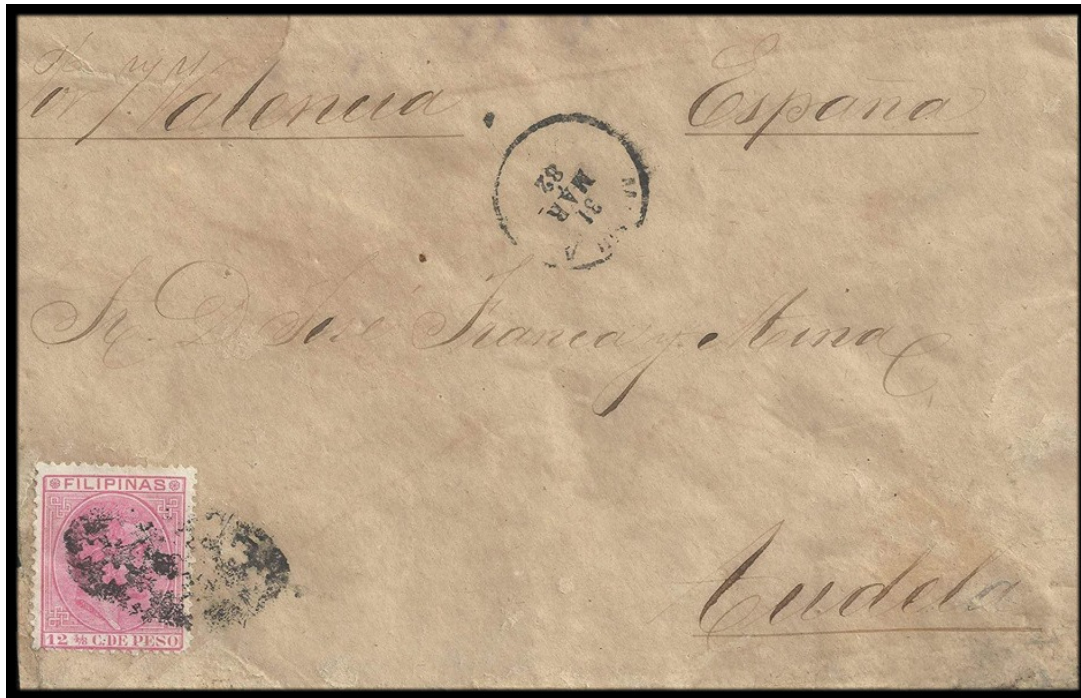 Valencia España
31
MAR
82
Sr. D. José Franca y Mina
FILIPINAS
12 4/8 C. DE PESO
Tudela